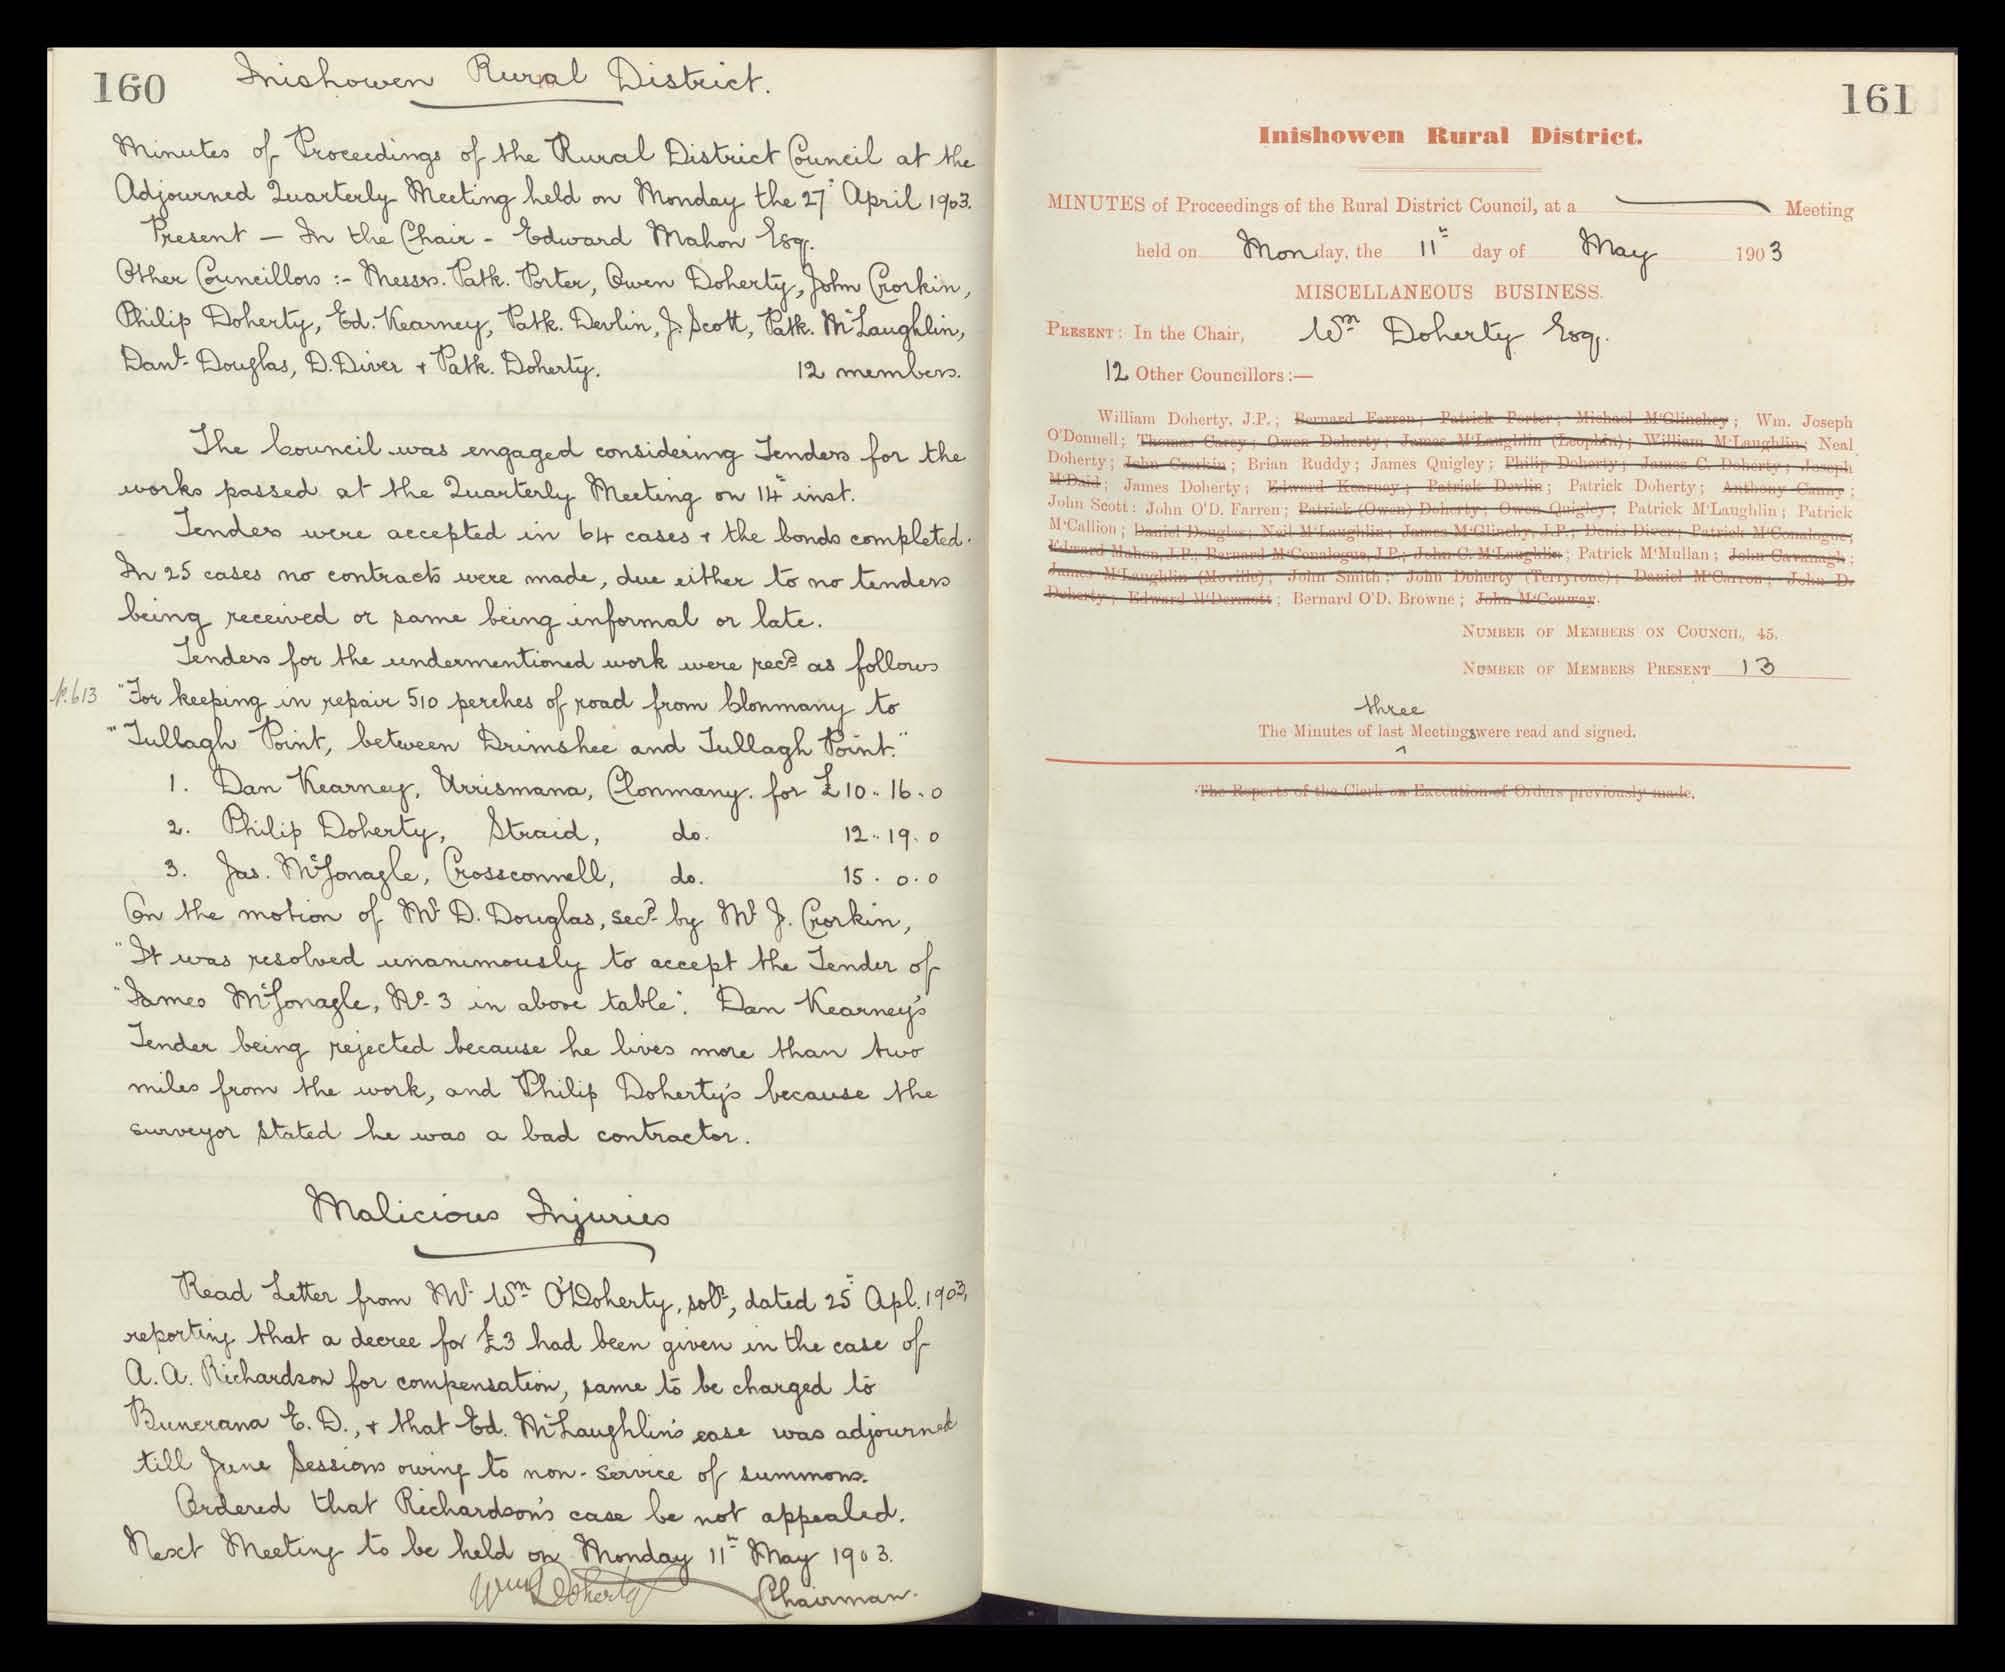 160
Inishowen Rural District.
Minutes of Proceedings of the Rural District Council at the
Adjourned Quarterly Meeting held on Monday the 27th April 1903.
Present — In the Chair - Edward Mahon Esq.
Other Councillors :- Messrs. Patk. Porter, Owen Doherty, John Crorkin,
Philip Doherty, Ed. Kearney, Patk. Devlin, J. Scott, Patk. McLaughlin,
Danl. Douglas, D. Diver + Patk. Doherty. 12 members.
The Council was engaged considering Tenders for the
works passed at the Quarterly Meeting on 14th inst.
Tenders were accepted in 64 cases + the bonds completed.
In 25 cases no contracts were made, due either to no tenders
being received or same being informal or late.
Tenders for the undermentioned work were recd as follows
No. 613 "For keeping in repair 510 perches of road from Clonmany to
"Tullagh Point, between Drimshee and Tullagh Point."
1. Dan Kearney, Urrismana, Clonmany. for £10.. 16.. 0
2. Philip Doherty, Straid, do. 12.. 19. 0
3. Jas. McGonagle, Crossconnell, do. 15. 0. 0
On the motion of Mr D. Douglas, secd. by Mr J. Crorkin,
"It was resolved unanimously to accept the Tender of
"James McGonagle, No. 3 in above table". Dan Kearney's
Tender being rejected because he lives more than two
miles from the work, and Philip Doherty's because the
surveyor stated he was a bad contractor.
Malicious Injuries
Read Letter from Mr. Wm O'Doherty, solr, dated 25th Apl. 1903,
reporting that a decree for £3 had been given in the case of
A. A. Richardson for compensation, same to be charged to
Buncrana E. D., + that Ed. McLaughlin's case was adjourned
till June Sessions owing to non-service of summons.
Ordered that Richardson's case be not appealed.
Next Meeting to be held on Monday 11th May 1903.
Wm Doherty Chairman.
161
Inishowen Rural District.
MINUTES of Proceedings of the Rural District Council, at a Meeting
held on Monday, the 11th day of May 1903
MISCELLANEOUS BUSINESS.
PRESENT: In the Chair, Wm Doherty Esq.
12 Other Councillors:—
William Doherty, J.P.; Bernard Farren; Patrick Porter; Michael M'Glinchey; Wm. Joseph
O'Donnell; Thomas Carey; Owen Doherty; James M'Laughlin (Leophin); William M'Laughlin; Neal
Doherty; John Crorkin; Brian Ruddy; James Quigley; Philip Doherty; James C. Doherty; Joseph
M'Daid; James Doherty; Edward Kearney; Patrick Devlin; Patrick Doherty; Anthony Canny;
John Scott; John O'D. Farren; Patrick (Owen) Doherty; Owen Quigley; Patrick M'Laughlin; Patrick
M'Callion; Daniel Douglas; Neil M'Laughlin; James M'Glinchy, J.P.; Denis Diver; Patrick M'Conalogue;
Edward Mahon, J.P.; Bernard M'Conalogue, J.P.; John C. M'Laughlin; Patrick M'Mullan; John Cavanagh;
James M'Laughlin (Moville); John Smith; John Doherty (Terryrone); Daniel M'Carron; John D.
Doherty; Edward M'Dermott; Bernard O'D. Browne; John M'Conway.
NUMBER OF MEMBERS ON COUNCIL, 45.
NUMBER OF MEMBERS PRESENT 13
three
The Minutes of last Meetings were read and signed.
The Reports of the Clerk on Execution of Orders previously made.